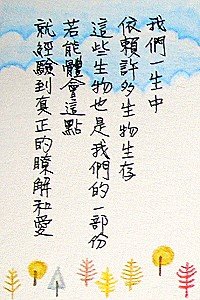 我們一生中
依賴許多生物生存
這些生物也是我們的一部份
若能體會這點
就經驗到真正的瞭解和愛